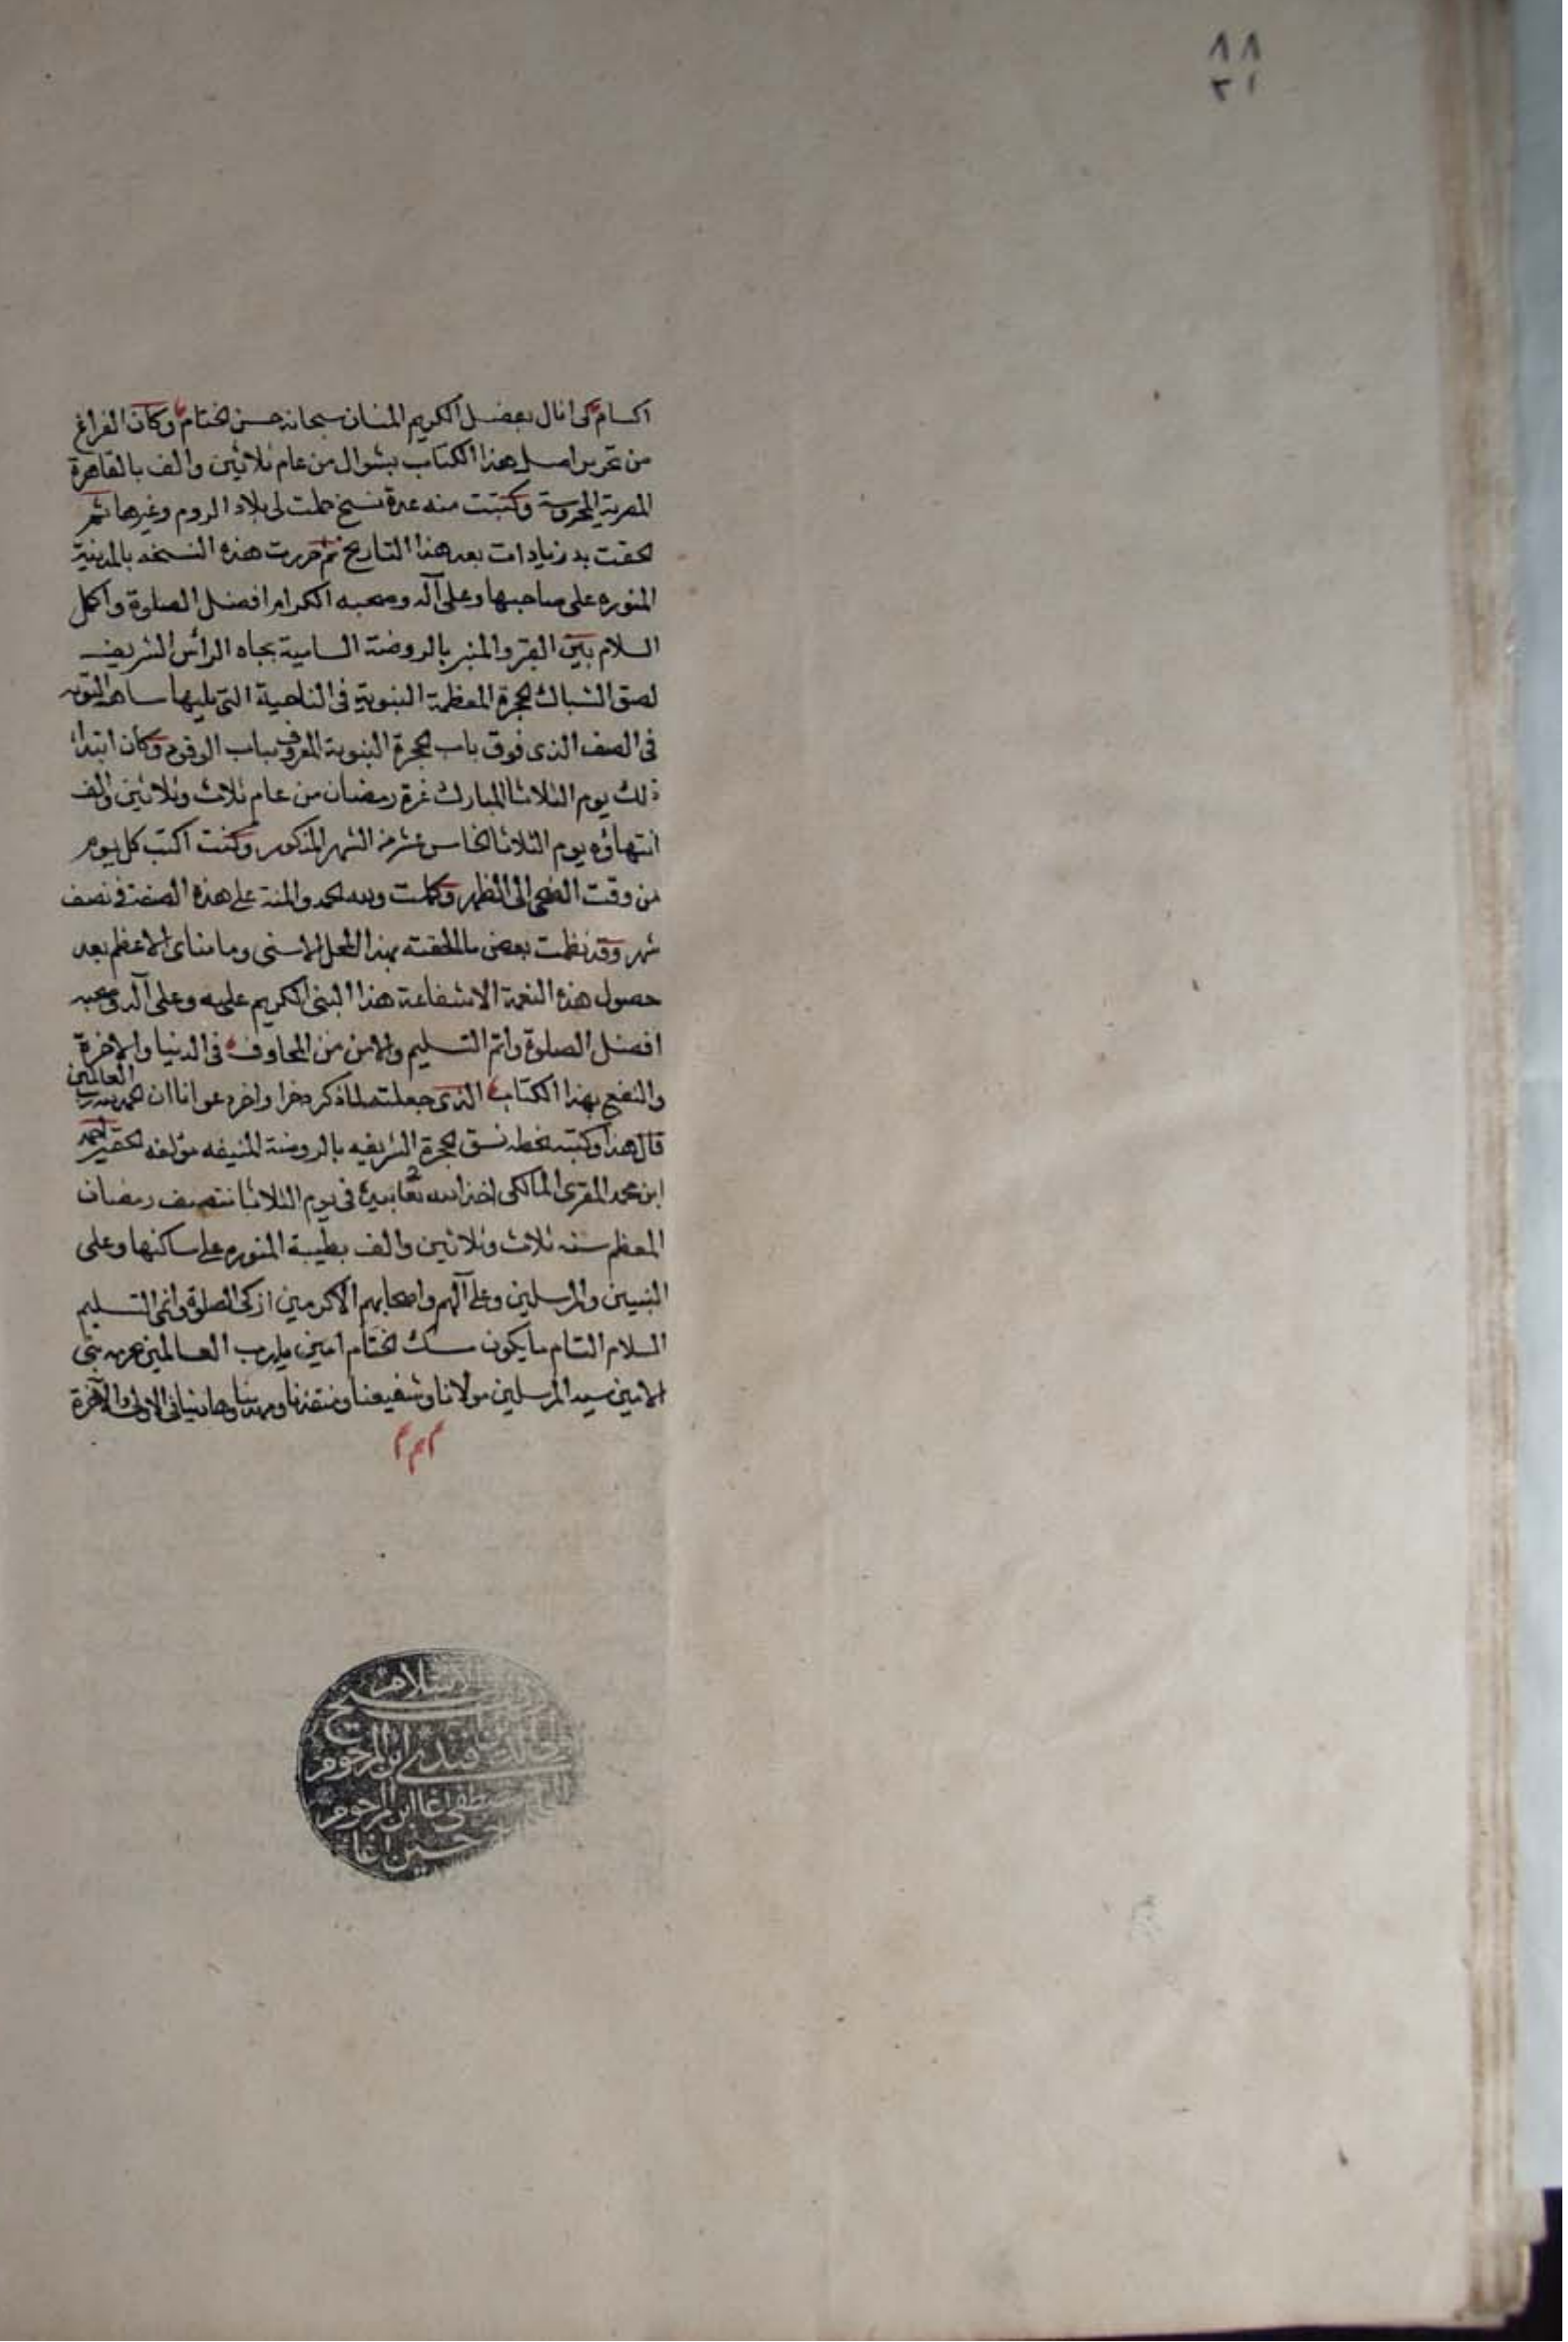 ٨٨
٢١
اكسام كى انال بفضل الكريم المنان سبحانه حسن الختام وكان الفراغ
من تحرير اصل هذا الكتاب بشوال من عام ثلاثين والف بالقاهرة
المصرية المحروسة وكتبت منه عدة نسخ حملت لى بلاد الروم وغيرها ثم
لحقت به زيادات بعد هذا التاريخ ثم حررت هذه النسخه بالمدينة
المنوره على صاحبها وعلى آله وصحبه الكرام افضل الصلوة واكمل
السلام بين القبر والمنبر بالروضة السامية تجاه الرأس الشريف
لصق الشباك لحجرة المعظمة النبوية فى الناحية التى يليها
فى الصف الذى فوق باب الحجرة النبوية المعروف بباب الوفود وكان ابتداء
ذلك يوم الثلاثا المبارك غرة رمضان من عام ثلاث وثلاثين والف
انتهاؤه يوم الثلاثا الخامس عشر من الشهر المذكور وكنت اكتب كل يوم
من وقت الضحى الى الظهر وكملت ولله الحمد والمنة على هذه الصفة فى نصف
شهر وقد نظمت بعض ما الحقته بهذا المحل الاسنى وما مناى الاعظم بعد
حصول هذه النعمة الا شفاعة هذا النبى الكريم عليه وعلى آله وصحبه
افضل الصلوة واتم التسليم والامن من المخاوف فى الدنيا والاخرة
والنفع بهذا الكتاب الذى جعلته لما ذكر ذخرا واخر دعوانا ان الحمد لله رب العالمين
قال هذا وكتبه بخطه نسق الحجرة الشريفه بالروضة المنيفه مؤلفه الحقير احمد
ابن محمد المقرى المالكى اخذ الله تعا بيده فى يوم الثلاثا منتصف رمضان
المعظم سنه ثلاث وثلاثين والف بطيبة المنوره على ساكنها وعلى
النبيين والمرسلين وعلى آلهم واصحابهم الاكرمين ازكى الصلوة وانمى التسليم
السلام التام ما يكون مسك الختام امين يا رب العالمين بحرمه نبى
الامين سيد المرسلين مولانا وشفيعنا ومنقذنا ومهدينا وهادينا فى الاولى والآخرة
م م م
الاسلام
شيخ
افندى ابن المرحوم
مصطفى اغا ابن المرحوم
حسين اغا